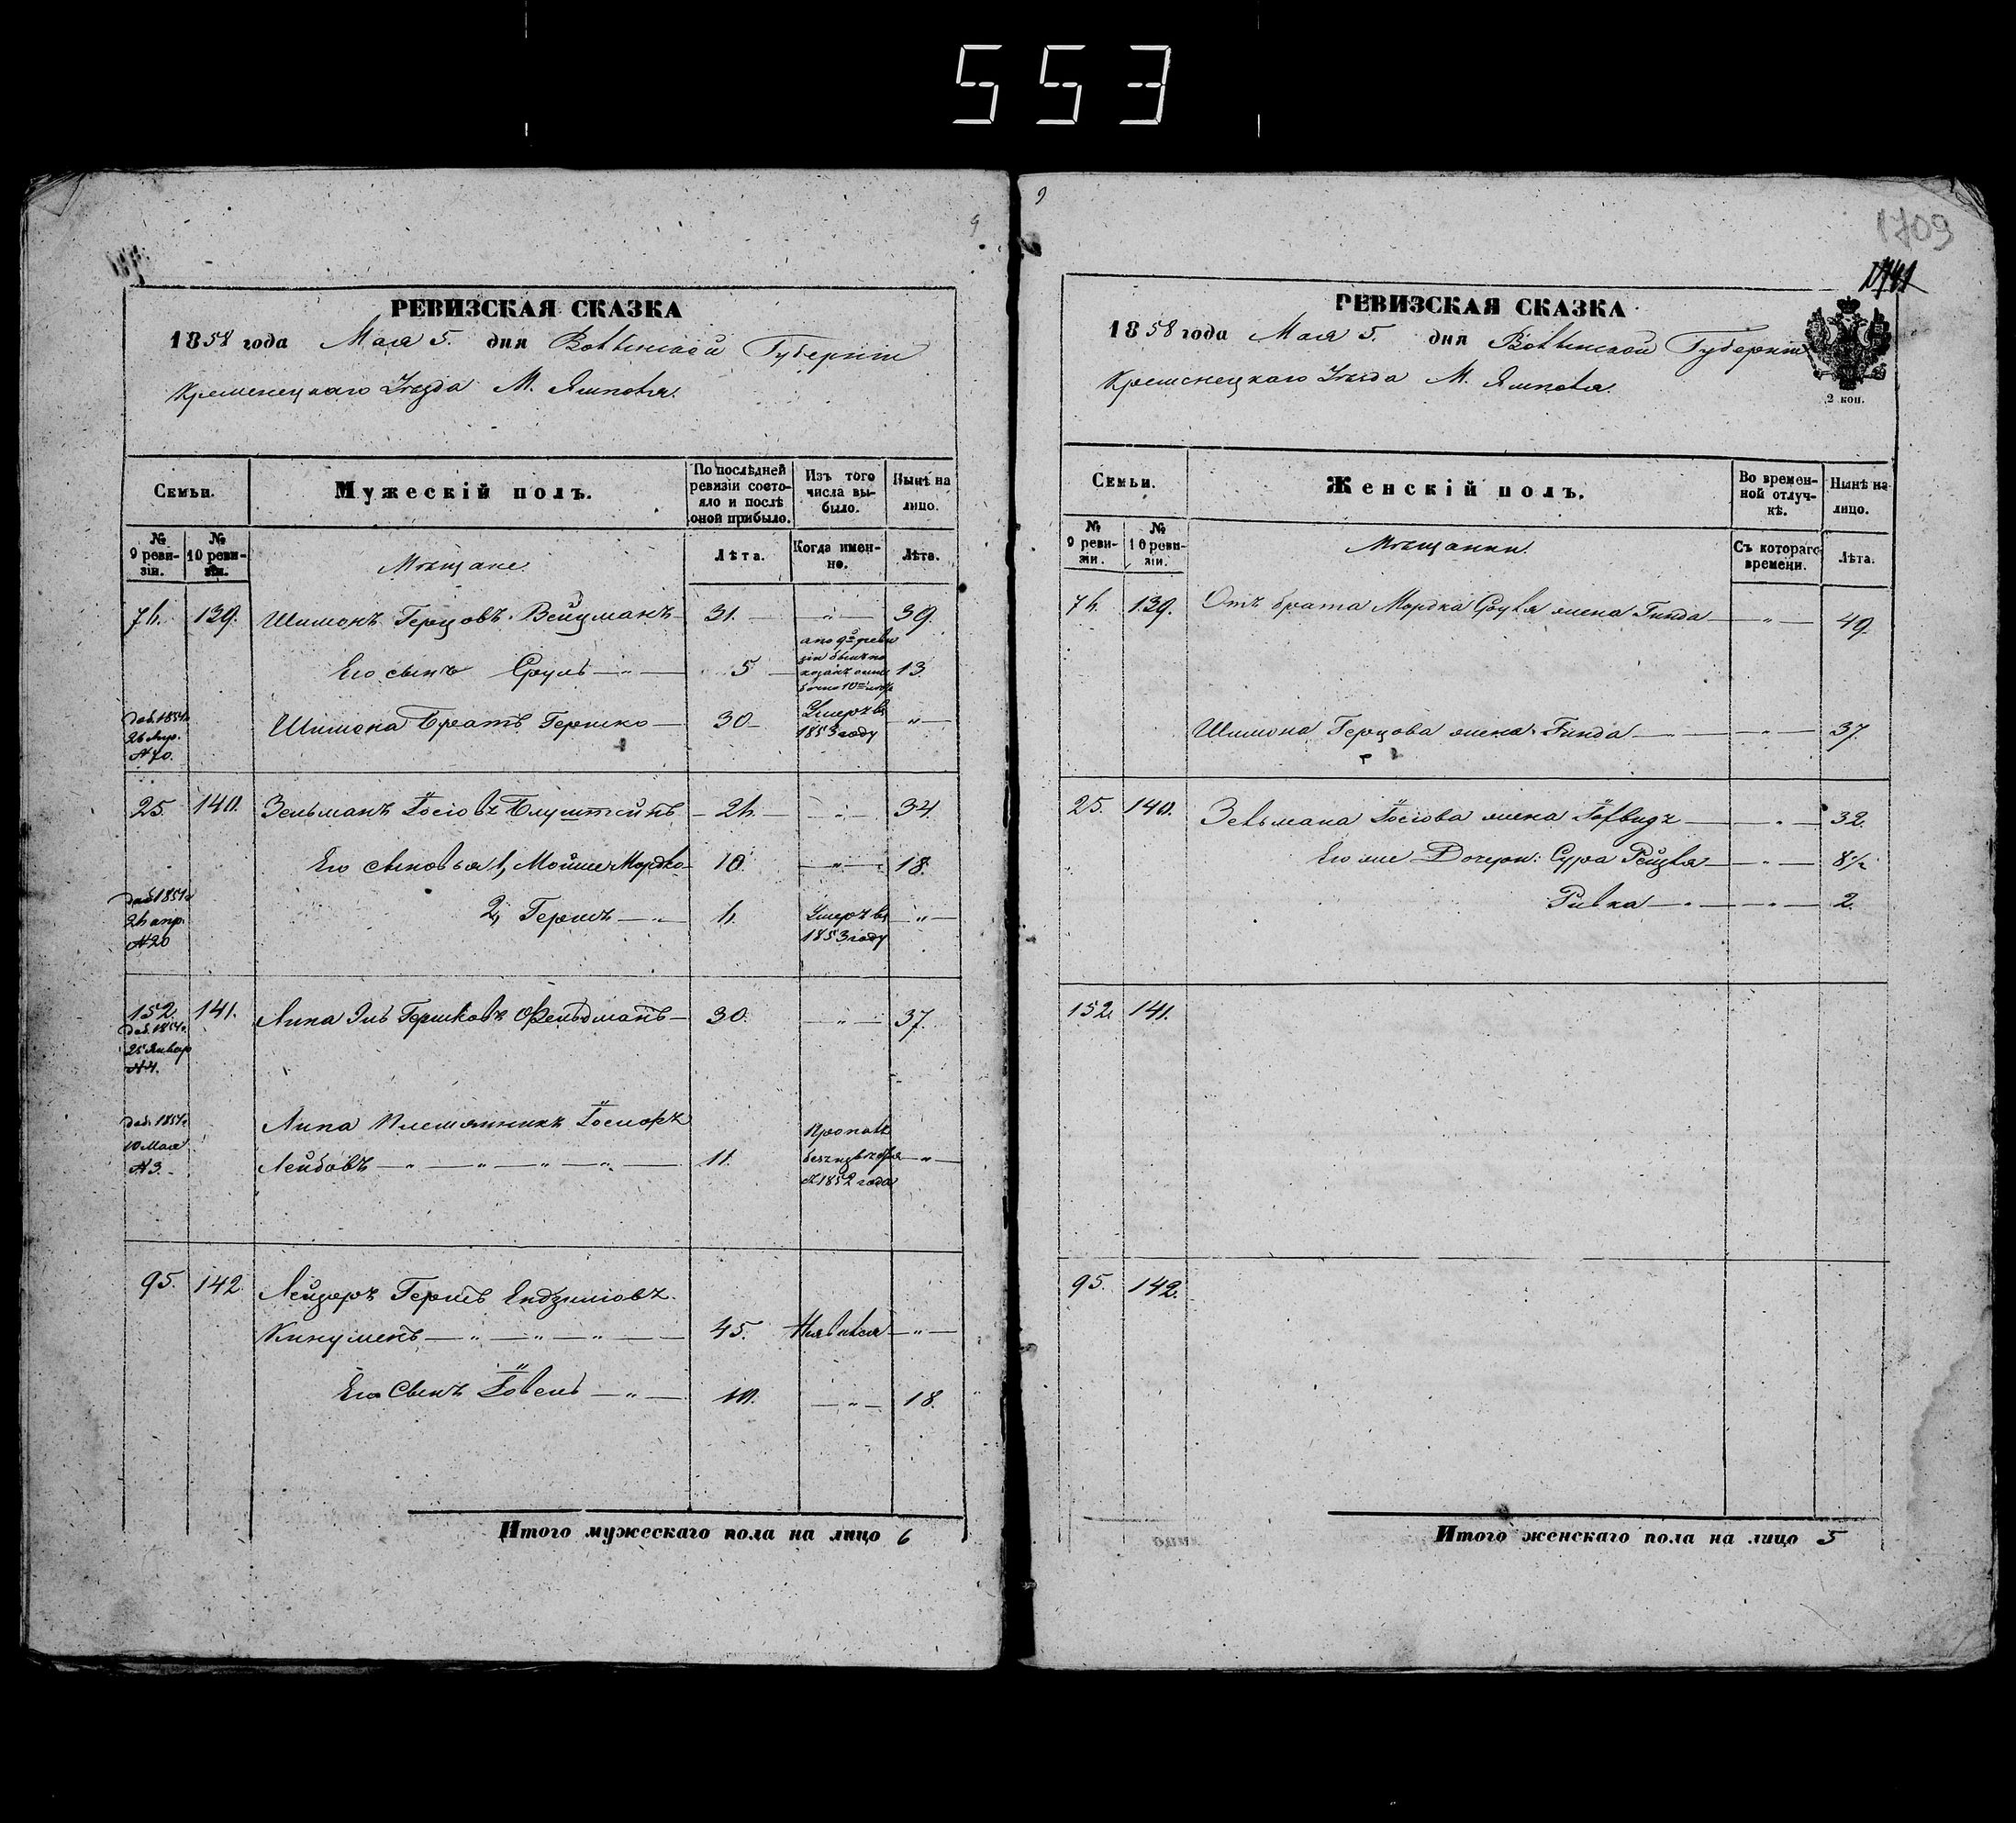 553
РЕВИЗСКАЯ СКАЗКА
1858 года Мая 5. дня Волынской Губерніи
Кременецкаго Уезда М. Ямполя.
Семьи.
Мужескій полъ.
По послѣдней ревизіи состояло и послѣ оной прибыло.
Изъ того числа выбыло.
Нынѣ на лицо.
№ 9 ревизіи.
№ 10 ревизіи.
Мѣщане.
Лѣта.
Когда именно.
Лѣта.
76. 139. Шимонъ Герцовъ Вейцманъ — 31. — „ — 39.
Его сынъ Сруль — „ — 5 — а по 9й ревизіи былъ показанъ 13.
дов. 1854 26 Апр. №70. Шимона Братъ Гершко — 30 — Умеръ въ 1853 году — „ —
25. 140. Зельманъ Іосіовъ Блуштейнъ — 26. — „ — 34.
Его сыновья 1, Мойше Мордко — 10. — „ — 18.
дов 1854 26 апр. №20 2, Гершъ — „ — 6. Умеръ въ 1853 году — „ —
152. 141. Липа Эль Гершковъ Фельдманъ — 30. — „ — 37.
дов. 1854. 25 Январ №4.
дов. 1854 10 Мая №3. Липа Племянникъ Іосифъ
Лейбовъ — „ — „ — „ — „ — 11. Пропалъ безъ изв с 1852 года — „ —
95. 142. Лейзеръ Гершъ
Кинуменъ — „ — „ — „ — 45. Неявился — „ —
Его Сынъ Іовель — „ — 10. — „ — 18.
Итого мужескаго пола на лицо 6
1709
РЕВИЗСКАЯ СКАЗКА
1858 года Мая 5. дня Волынской Губерніи
Кременецкаго Уезда М. Ямполя.
2 коп.
Семьи.
Женскій полъ.
Во временной отлучкѣ.
Нынѣ на лицо.
№ 9 ревизіи.
№ 10 ревизіи.
Мѣщанки.
Съ котораго времени.
Лѣта.
76. 139. Отъ брата Мордка Сруля жена Гинда — „ — 49.
Шимона Герцова жена Гинда — „ — 37.
25. 140. Зельмана Іосіова жена — „ — 32.
Его же Дочери: Сура Рейзля — „ — 8 1/2
Ривка — „ — „ — 2.
152. 141.
95. 142.
Итого женскаго пола на лицо 5